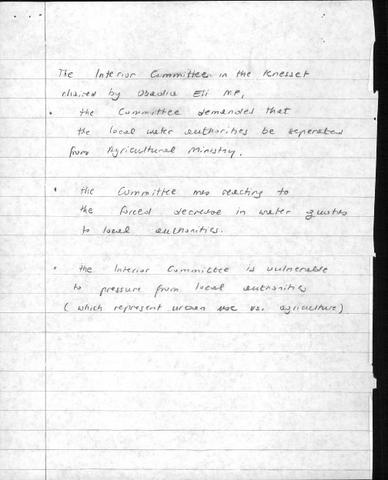 The Interior Committee in the Knesset
chaired by Obadia Eli M.P,
• the Committee demanded that
the local water authorities be seperated
from Agricultural Ministry.
• the Committee was reacting to
the forced decrease in water quotas
to local authorities.
• the Interior Committee is vulnerable
to pressure from local authorities
(which represent urban use vs. agriculture)